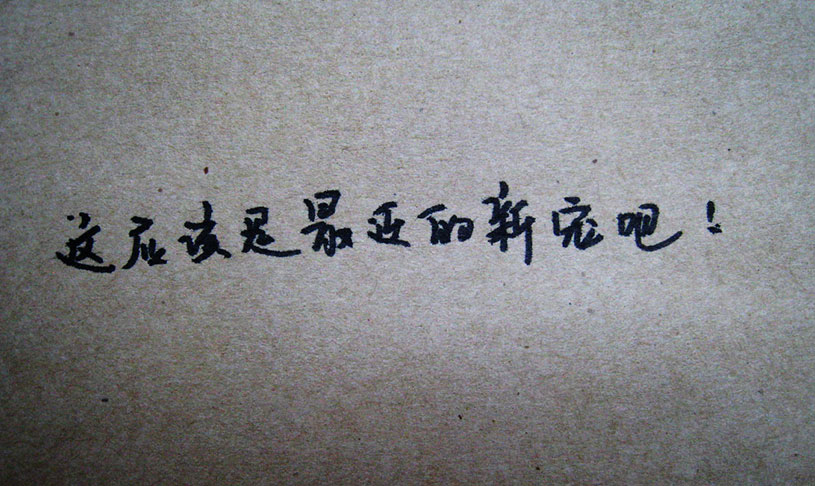 这应该是最近的新宠吧！